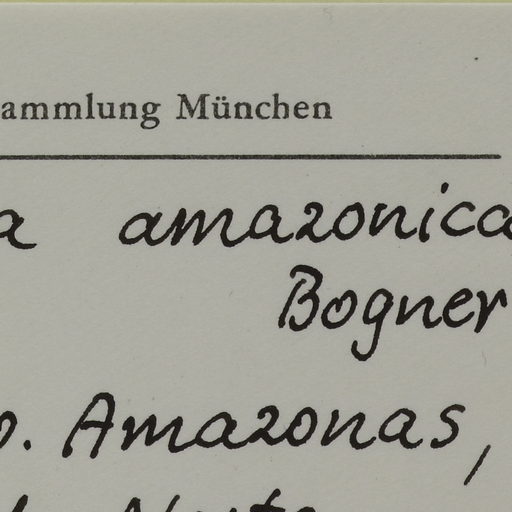 ammlung München
a amazonica
Bogner
o. Amazonas,